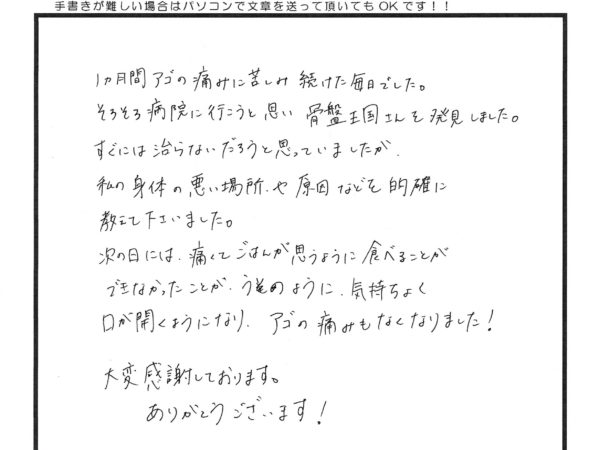 手書きが難しい場合はパソコンで文章を送って頂いてもOKです！！
1ヵ月間アゴの痛みに苦しみ続けた毎日でした。
そろそろ病院に行こうと思い骨盤王国さんを発見しました。
すぐには治らないだろうと思っていましたが、
私の身体の悪い場所、や原因などを的確に
教えて下さいました。
次の日には、痛くてごはんが思うように食べることが
できなかったことが、うそのように、気持ちよく
口が開くようになり、アゴの痛みもなくなりました！
大変感謝しております。
ありがとうございます！